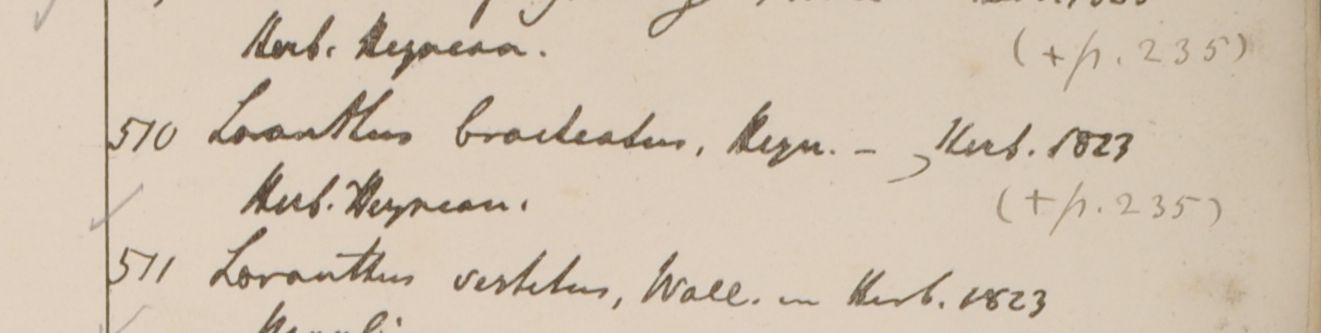 Herb. Heynean. (+p. 235)
510 Loranthus bracteatus, Heyn. - Herb. 1823
Herb. Heynean. (+p. 235)
511 Loranthus vestitus, Wall. in Herb. 1823